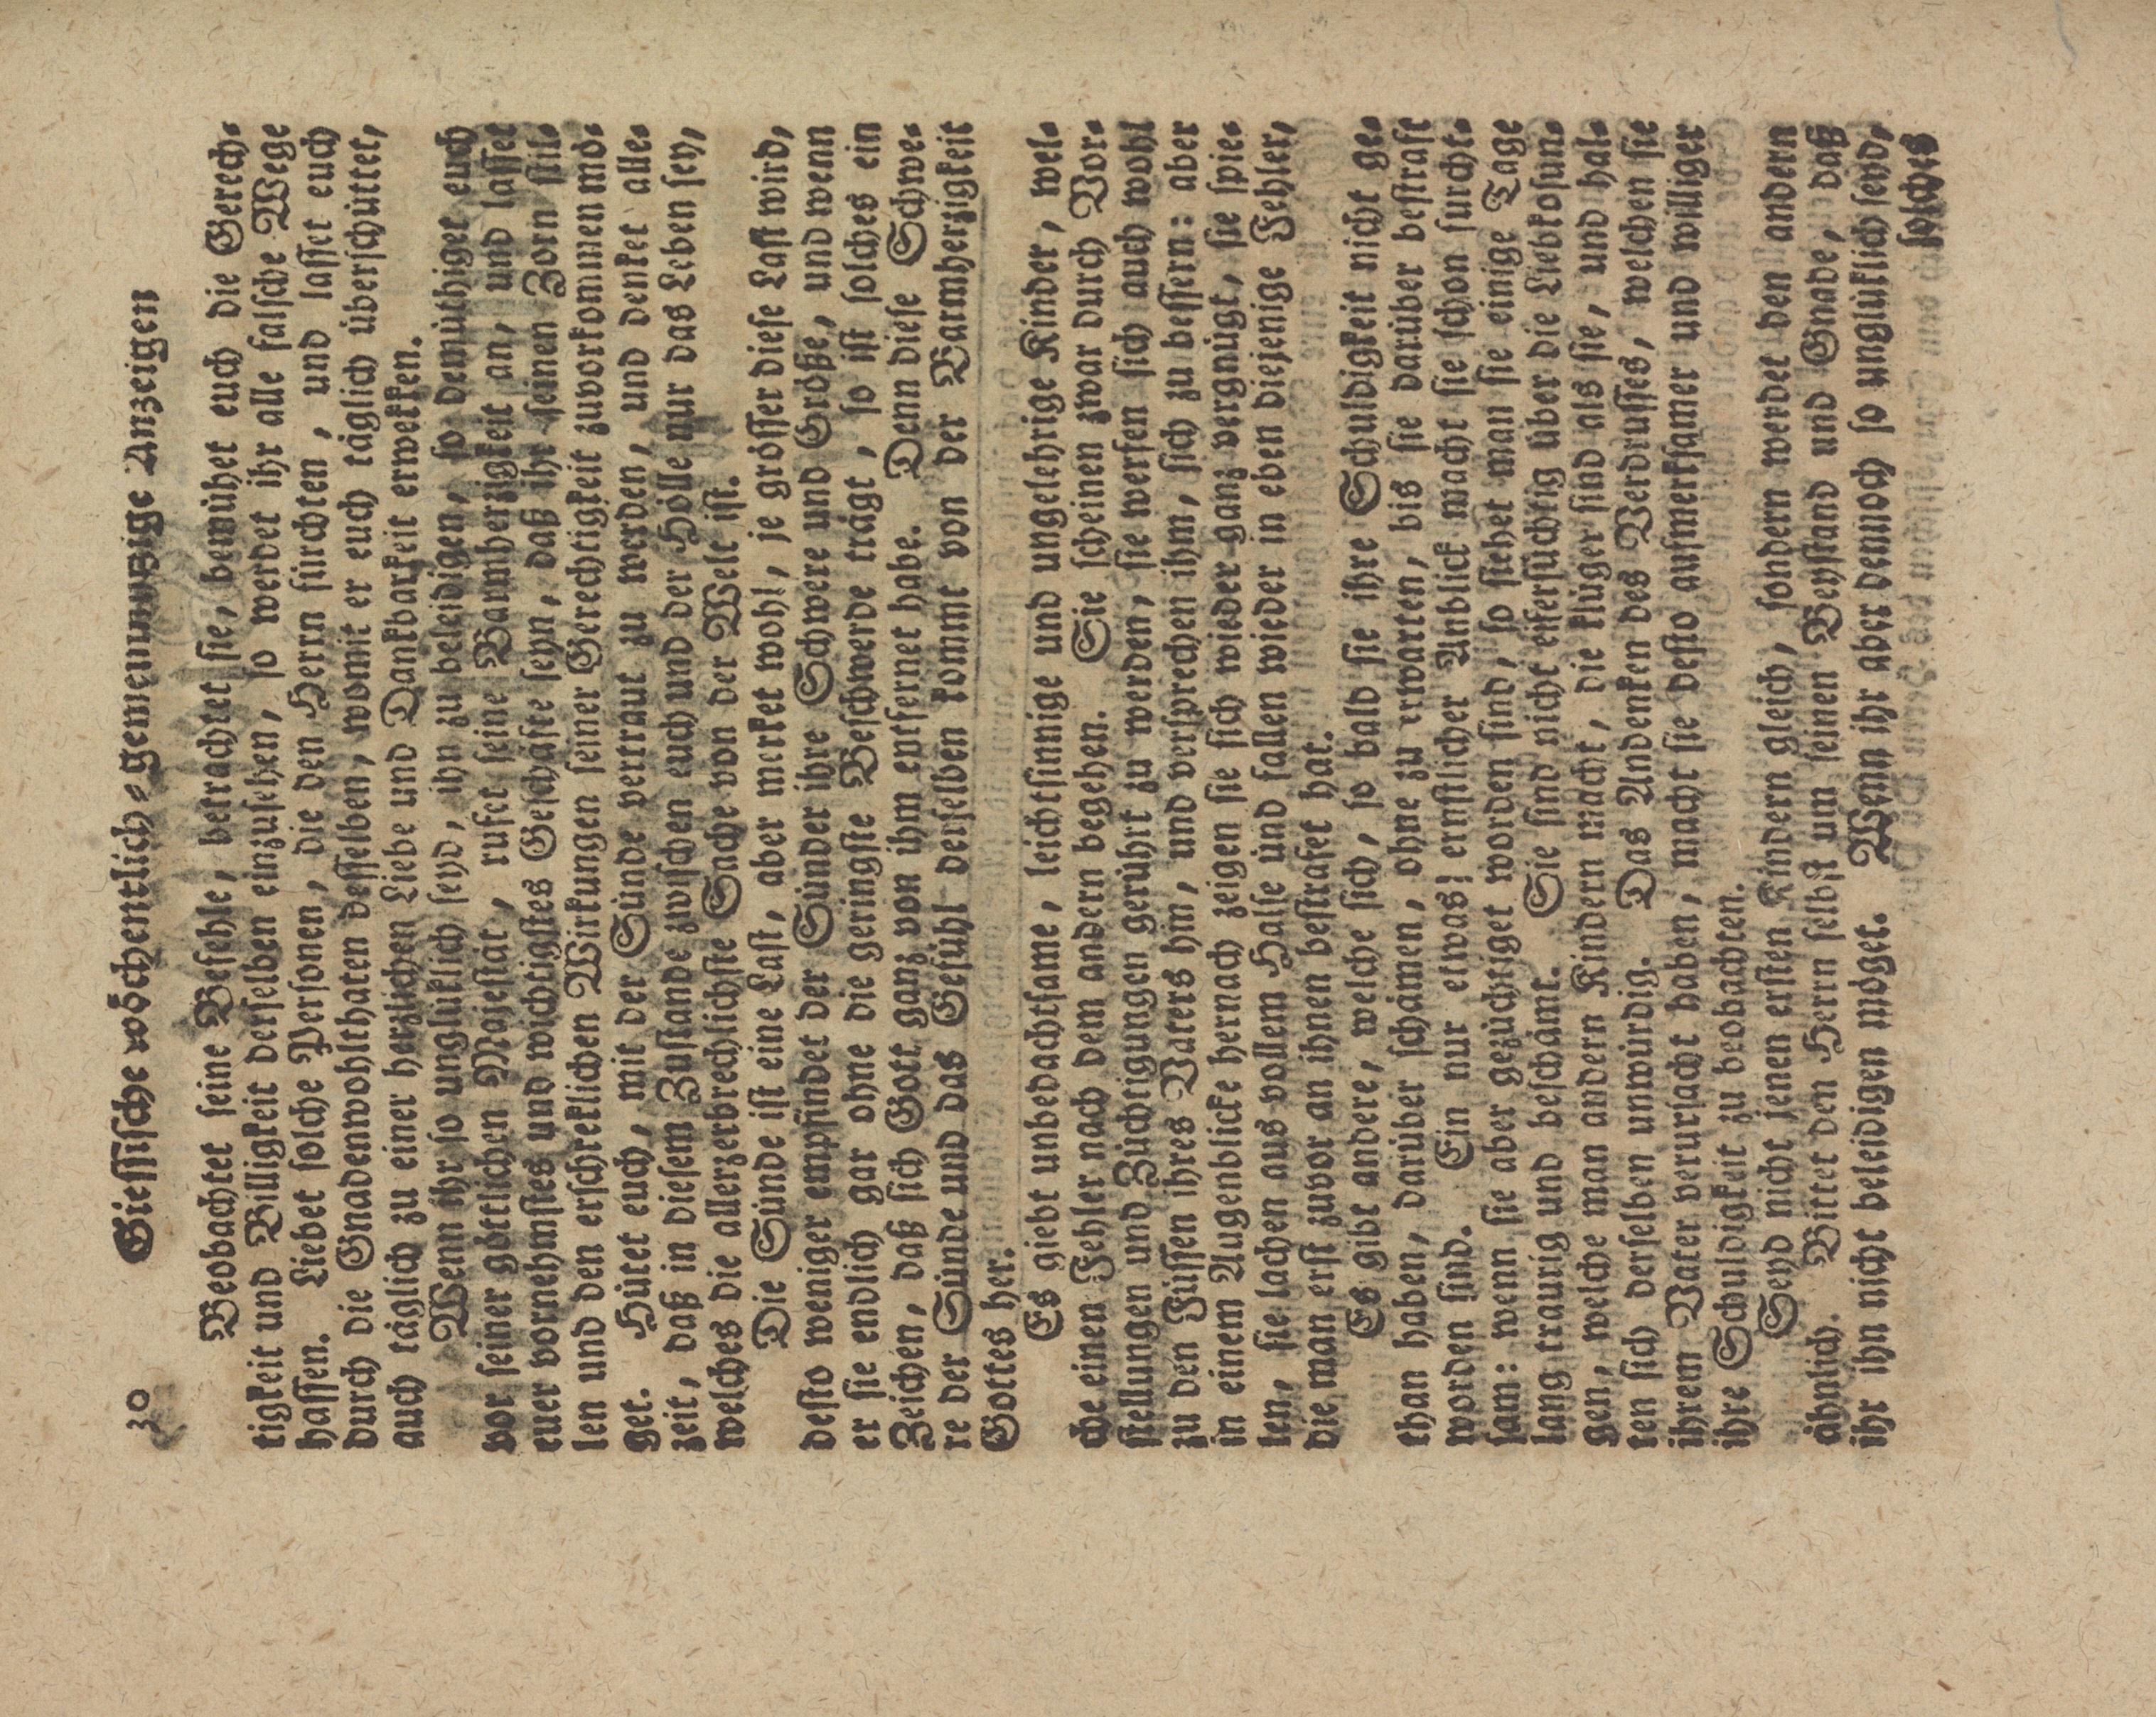 30 Giessische wöchentlich-gemeinnuzige Anzeigen
Beobachtet seine Befehle, betrachtet sie, bemühet euch die Gerech-
tigkeit und Billigkeit derselben einzusehen, so werdet ihr alle falsche Wege
hassen. Liebet solche Personen, die den Herrn fürchten, und lasset euch
durch die Gnadenwohlthaten desselben, womit er euch täglich überschüttet,
auch täglich zu einer herzlichen Liebe und Dankbarkeit erwekken.
Wenn ihr so unglüklich seyd, ihn zu beleidigen, so demüthiget euch
vor seiner göttlichen Majestät, rufet seine Barmherzigkeit an, und lasset
euer vornehmstes und wichtigstes Geschäfte seyn, daß ihr seinen Zorn stil-
len und den erschreklichen Wirkungen seiner Gerechtigkeit zuvorkommen mö-
get. Hütet euch, mit der Sünde vertraut zu werden, und denket alle-
zeit, daß in diesem Zustande zwischen euch und der Hölle nur das Leben sey,
welches die allerzerbrechlichste Sache von der Welt ist.
Die Sünde ist eine Last, aber merket wohl, je grösser diese Last wird,
desto weniger empfindet der Sünder ihre Schwere und Größe, und wenn
er sie endlich gar ohne die geringste Beschwerde trägt, so ist solches ein
Zeichen, daß sich Gott ganz von ihm entfernet habe. Denn diese Schwe-
re der Sünde und das Gefühl derselben kommt von der Barmherzigkeit
Gottes her.
Es giebt unbedachtsame, leichtsinnige und ungelehrige Kinder, wel-
che einen Fehler nach dem andern begehen. Sie scheinen zwar durch Vor-
stellungen und Züchtigungen gerührt zu werden, sie werfen sich auch wohl
zu den Füssen ihres Vaters hin, und versprechen ihm, sich zu bessern: aber
in einem Augenblicke hernach zeigen sie sich wieder ganz vergnügt, sie spie-
len, sie lachen aus vollem Halse und fallen wieder in eben diejenige Fehler,
die man erst zuvor an ihnen bestrafet hat.
Es gibt andere, welche sich, so bald sie ihre Schuldigkeit nicht ge-
than haben, darüber schämen, ohne zu erwarten, bis sie darüber bestraft
worden sind. Ein nur etwas ernstlicher Anblick macht sie schon furcht-
sam: wenn sie aber gezüchtiget worden sind, so siehet man sie einige Tage
lang traurig und beschämt. Sie sind nicht eifersüchtig über die Liebkosun-
gen, welche man andern Kindern macht, die klüger sind als sie, und hal-
ten sich derselben unwürdig. Das Andenken des Verdrusses, welchen sie
ihrem Vater verursacht haben, macht sie desto aufmerksamer und williger
ihre Schuldigkeit zu beobachten.
Seyd nicht jenen ersten Kindern gleich, sondern werdet den andern
ähnlich. Bittet den Herrn selbst um seinen Beystand und Gnade, daß
ihr ihn nicht beleidigen möget. Wenn ihr aber dennoch so unglüklich seyd,
solches